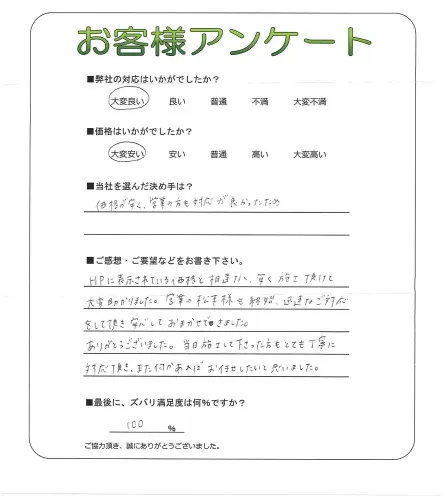 お客様アンケート
■弊社の対応はいかがでしたか？
大変良い 良い 普通 不満 大変不満
■価格はいかがでしたか？
大変安い 安い 普通 高い 大変高い
■当社を選んだ決め手は？
価格が安く、営業の方も対応が良かったため
■ご感想・ご要望などをお書き下さい。
HPに表示されている価格と相違なく、安く施工頂けて
大変助かりました。営業の松本様も終始、迅速なご対応
をして頂き安心しておまかせできました。
ありがとうございました。当日施工して下さった方もとても丁寧に
対応頂き、また何かあればお任せしたいと思いました。
■最後に、ズバリ満足度は何%ですか？
100 %
ご協力頂き、誠にありがとうございました。